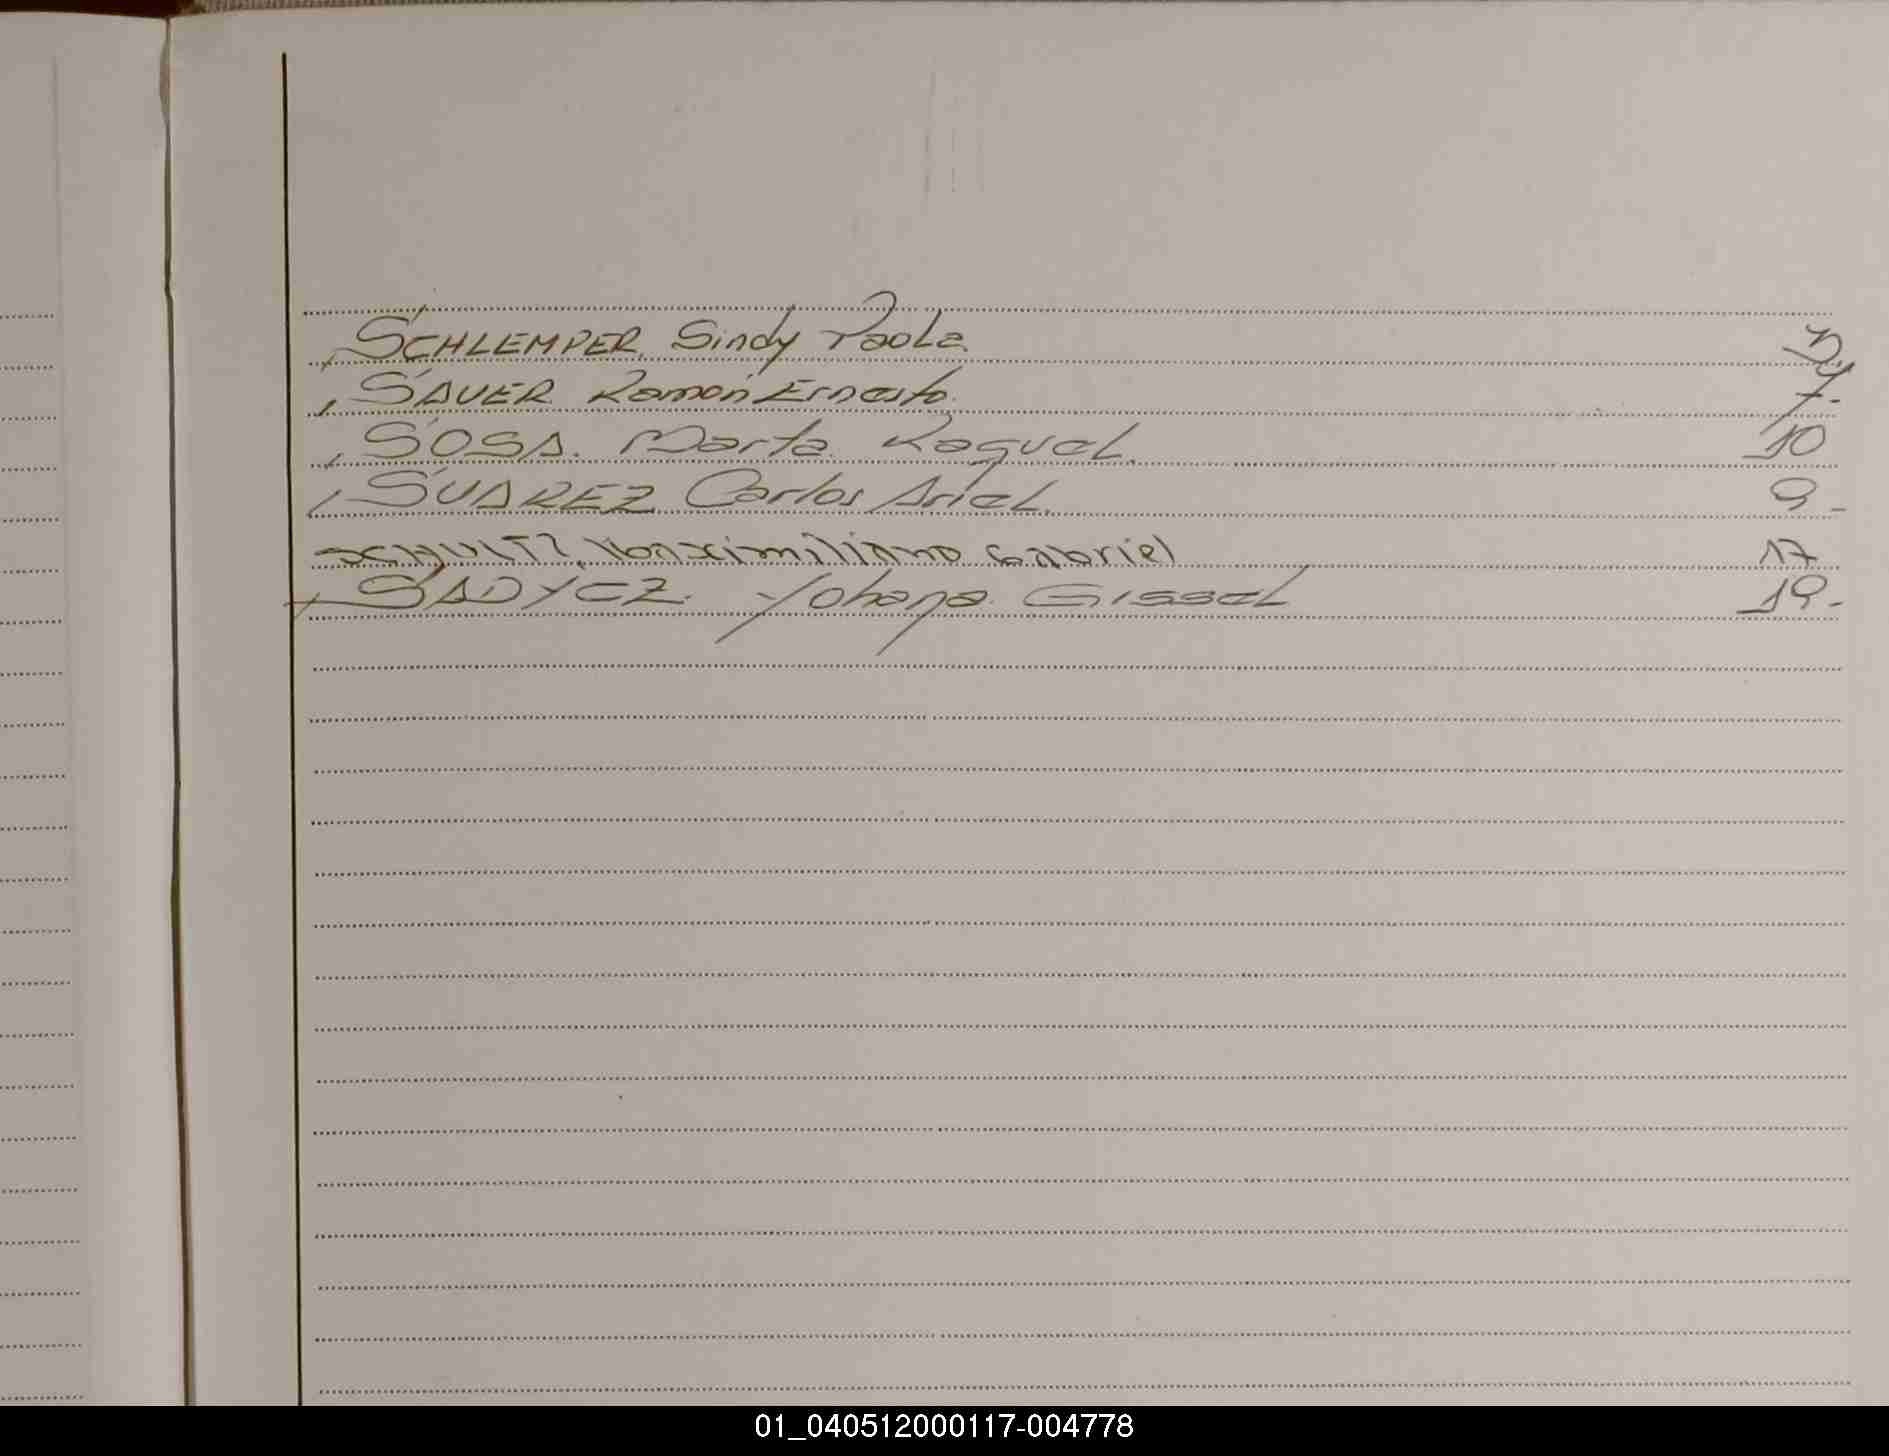 SCHLEMPER, Sindy Paola. 3.
SAUER Ramón Ernesto. 7.
SOSA. Marta Raquel. 10
SUAREZ Carlos Ariel. 9.
SCHULTZ, Maximiliano Gabriel 17
SADYCZ. Yohana Gissel 19.
01_040512000117-004778